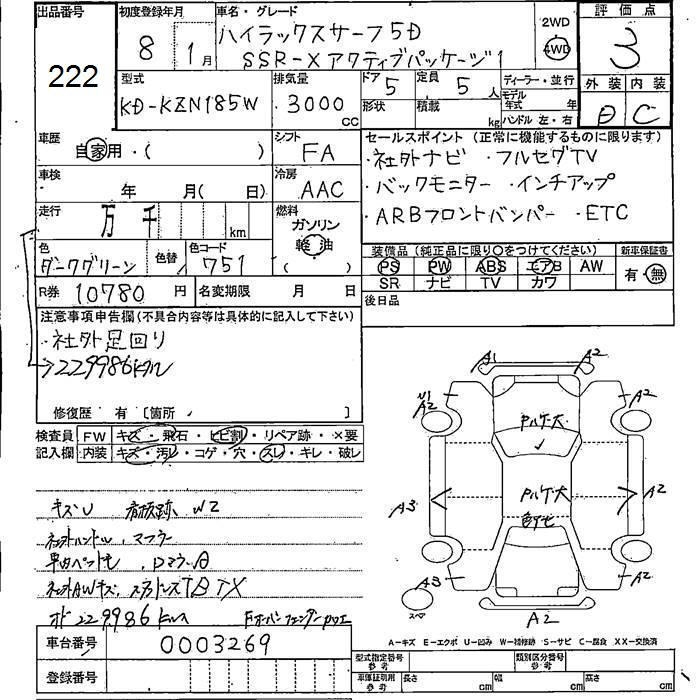 出品番号
222
初度登録年月
8 1月
車名・グレード
ハイラックスサーフ5D
SSR-Xアクティブパッケージ
2WD
4WD
評価点
3
型式
KD-KZN185W
排気量
3000
CC
ドア
5
定員
5 人
形状
積載
kg
ディーラー・並行
モデル年式 年
ハンドル 左・右
外装 内装
C
車歴
自家用・( )
シフト
FA
車検
年 月( 日)
冷房
AAC
走行
万 千 km
燃料
ガソリン
軽油
( )
色
ダークグリーン
色替
色コード
751
R券 10780 円
名変期限 月 日
セールスポイント(正常に機能するものに限ります)
・社外ナビ ・フルセグTV
・バックモニター ・インチアップ
・ARBフロントバンパー ・ETC
装備品(純正品に限り○をつけてください)
新車保証書
PS PW ABS エアB AW
SR ナビ TV カワ
有・無
後日品
注意事項申告欄(不具合内容等は具体的に記入して下さい)
・社外足回り
→229986km
修復歴 有 [箇所 ]
検査員記入欄
FW キズ・飛石・ヒビ割・リペア跡・×要
内装 キズ・汚レ・コゲ・穴・スレ・キレ・破レ
キズU 看板跡 W2
社外ハンドル、マフラー
社外AWキズ
229986km
A1
A2
A2
A2
A3
A2
A3
A2
A2
スペア
A-キズ E-エクボ U-凹み W-補修跡 S-サビ C-腐食 XX-交換済
車台番号
0003269
登録番号
型式指定番号
参考
類別区分番号
参考
車庫証明用
参考
長さ cm
幅 cm
高さ cm